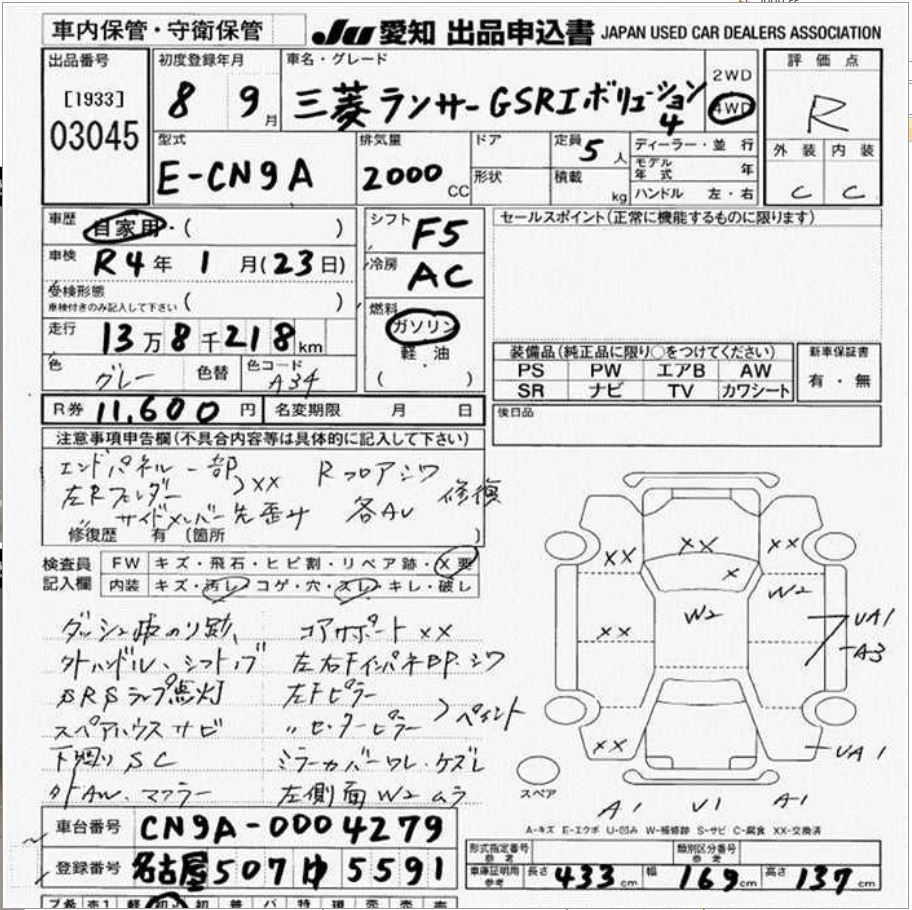 車内保管・守衛保管
Ju 愛知 出品申込書 JAPAN USED CAR DEALERS ASSOCIATION
出品番号
[1933]
03045
初度登録年月
8 9月
車名・グレード
三菱ランサーGSRエボリューション4
2WD
4WD
評価点
R
外装 内装
C C
型式
E-CN9A
排気量
2000 CC
ドア
形状
定員 5 人
積載 kg
ディーラー・並行
モデル年式 年
ハンドル 左・右
車歴 自家用・( )
車検 R4年 1月(23日)
受検形態
車検付きのみ記入して下さい ( )
走行 13万8千218km
色 グレー 色替 色コード A34
シフト F5
冷房 AC
燃料
ガソリン
軽油
( ・ )
セールスポイント(正常に機能するものに限ります)
装備品(純正品に限り○をつけてください)
PS PW エアB AW
SR ナビ TV カワシート
新車保証書
有・無
R券 11,600円 名変期限 月 日
後日品
注意事項申告欄(不具合内容等は具体的に記入して下さい)
エンドパネル一部
左Rフェンダー
>XX
Rフロアシワ
サイドメンバー先歪み
各AU
修復
修復歴 有 (箇所 )
検査員記入欄
FW キズ・飛石・ヒビ割・リペア跡・X要
内装 キズ・汚レ・コゲ・穴・スレ・キレ・破レ
ダッシュ
コアサポート XX
外ハンドル、シフトノブ
左右FインパネBP.シワ
SRSランプ点灯
左Fピラー
スペアハウスサビ
〃センターピラー
>ペイント
下廻り SC
ミラーカバーワレ・ケズレ
外AW、マフラー
左側面W2ムラ
XX
XX
XX
X
W2
W2
XX
UA1
A3
XX
UA1
スペア
A1
U1
A1
A-キズ E-エクボ U-凹み W-補修跡 S-サビ C-腐食 XX-交換済
車台番号 CN9A-0004279
登録番号 名古屋507ゆ5591
形式指定番号
参考
類別区分番号
参考
車庫証明用
参考
長さ 433cm 幅 169cm 高さ 137cm